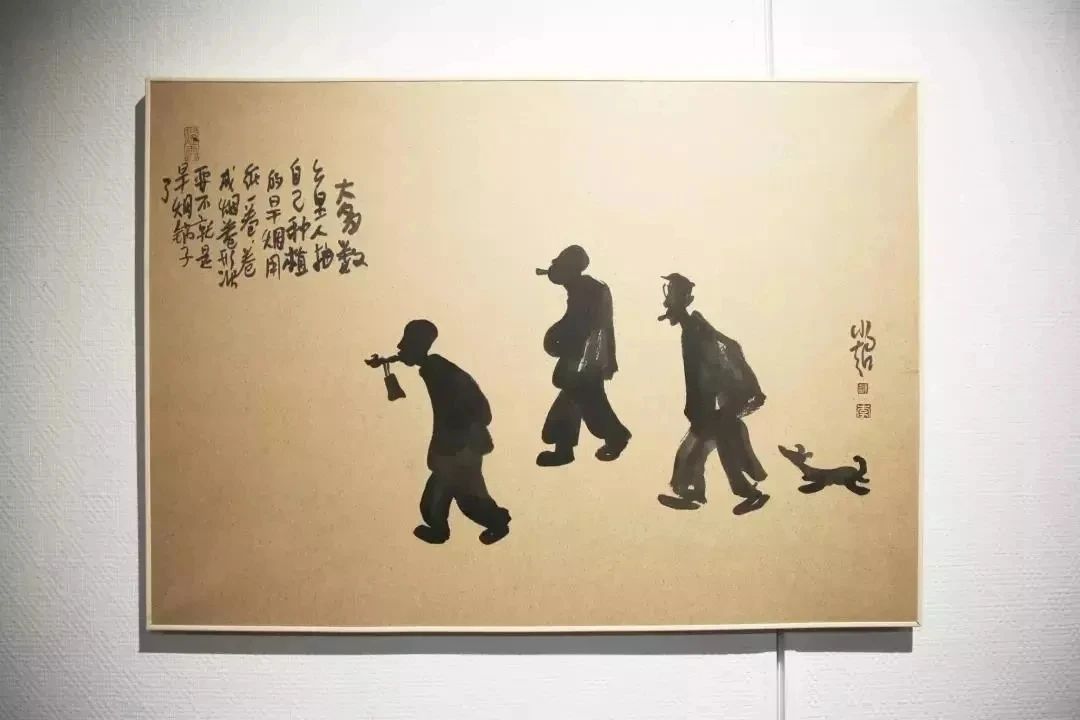 大多数
乡里人抽
自己种植
的旱烟用
纸一卷、卷
成烟卷形状
要不就是
旱烟锅子
了